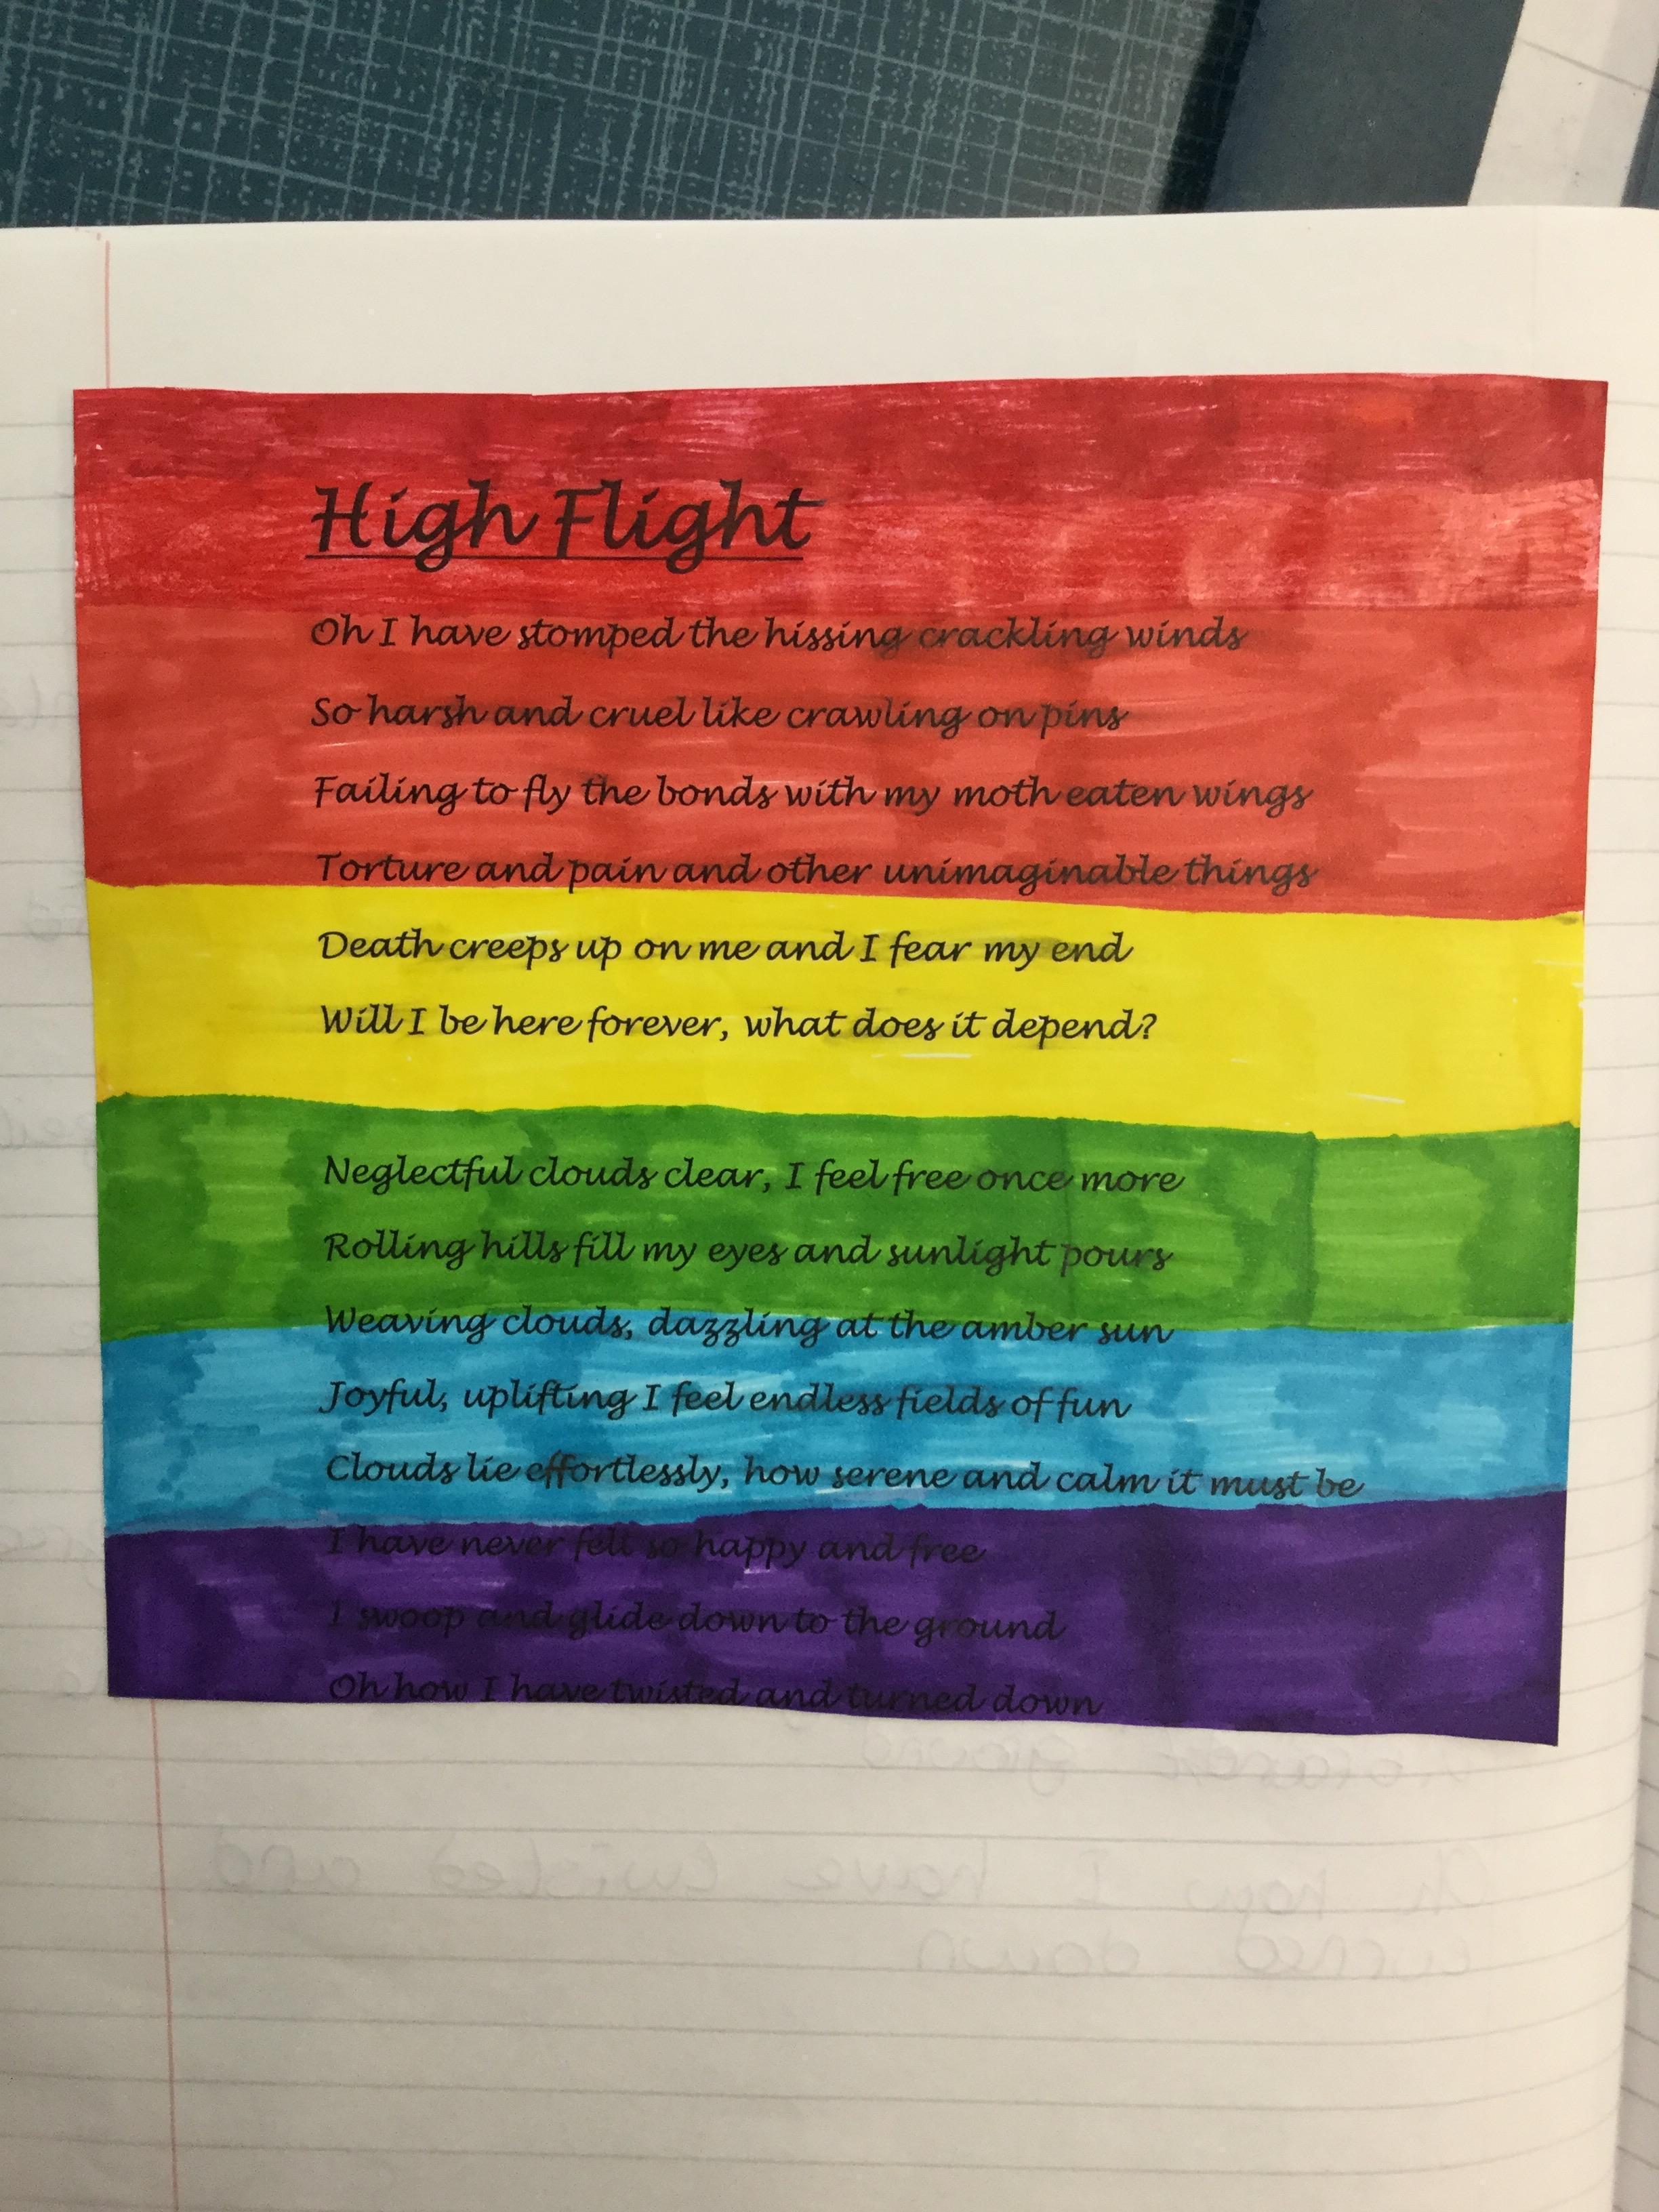 High Flight
Oh I have stomped the hissing crackling winds
So harsh and cruel like crawling on pins
Failing to fly the bonds with my moth eaten wings
Torture and pain and other unimaginable things
Death creeps up on me and I fear my end
Will I be here forever, what does it depend?
Neglectful clouds clear, I feel free once more
Rolling hills fill my eyes and sunlight pours
Weaving clouds, dazzling at the amber sun
Joyful, uplifting I feel endless fields of fun
Clouds lie effortlessly, how serene and calm it must be
I have never felt so happy and free
I swoop and glide down to the ground
Oh how I have twisted and turned down
ground
Oh how I have twisted and
turned down